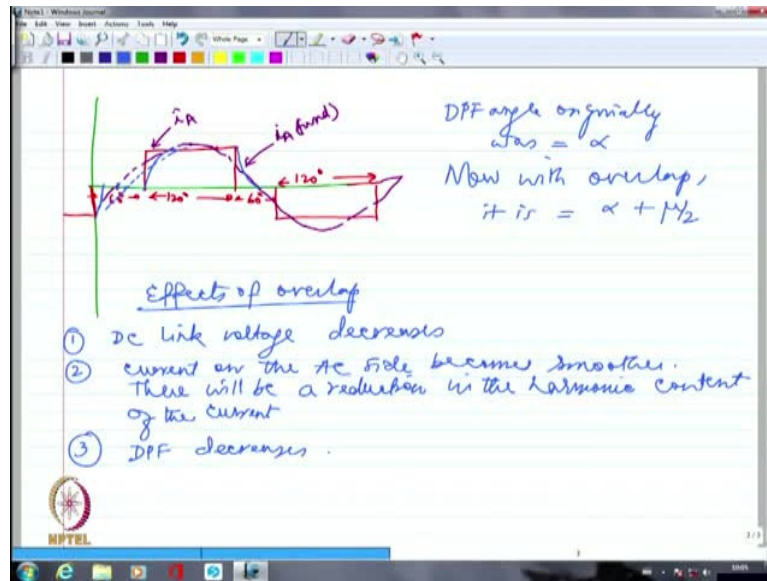 Note1 - Windows Journal
File Edit View Insert Actions Tools Help
Whole Page
iA
iA (fund)
60° ←120° → 60°
← 120° →
DPF angle originally
was = α
Now with overlap,
it is = α + μ/2
Effects of overlap
① DC link voltage decreases
② current on the AC side becomes smoother.
There will be a reduction in the harmonic content
of the current
③ DPF decreases.
NPTEL
3
2/3
10:05